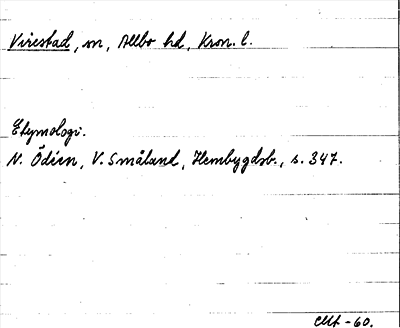 Virestad, sn, Allbo hd, Kron. l.
Etymologi.
N. Ödéen, V. Småland, Hembygdsb., s. 347.
-60.